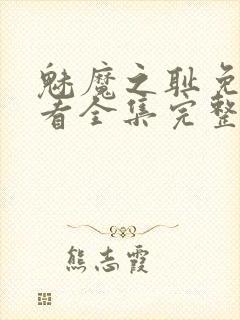 魅魔之耻免
者全集完整
熊志霞